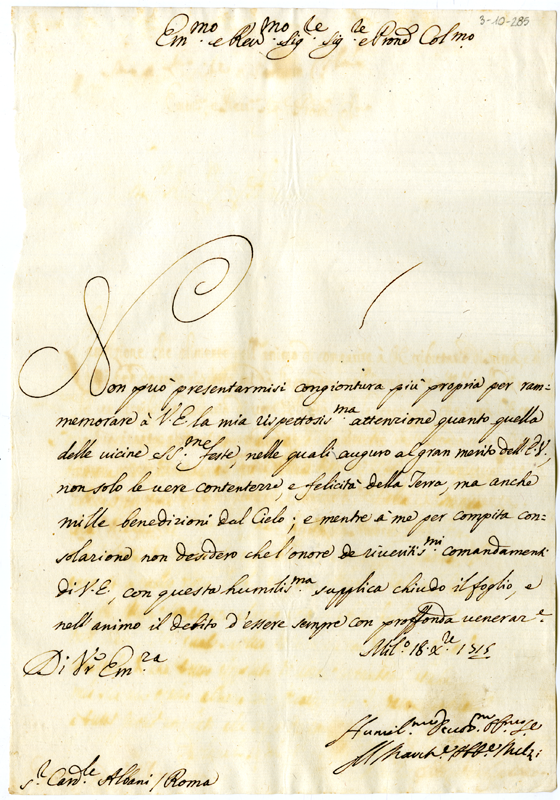 3-10-285
Em.mo e Rev.mo Sig.re Sig.re e Pron.e Col.mo
Non può presentarmisi congiontura più propria per ram=
memorare à V.E. la mia rispettosis.ma attenzione quanto quella
delle vicine SS.me feste, nelle quali auguro al gran merito dell'E.V.,
non solo le vere contentezze e felicità della Terra, ma anche
mille benedizioni dal Cielo; e mentre à me per compita con=
solazione non desidero che l'onore de riveritis.mi comandamenti
di V.E., con questa humilis.ma supplica chiudo il foglio, e
nell'animo il debito d'essere sempre con proffonda veneraz.e
Di V.ra Em.za
Mil.o 18 X.re 1715
Humil.mo Devot.mo
Il March.e
S.r Card.le Albani / Roma